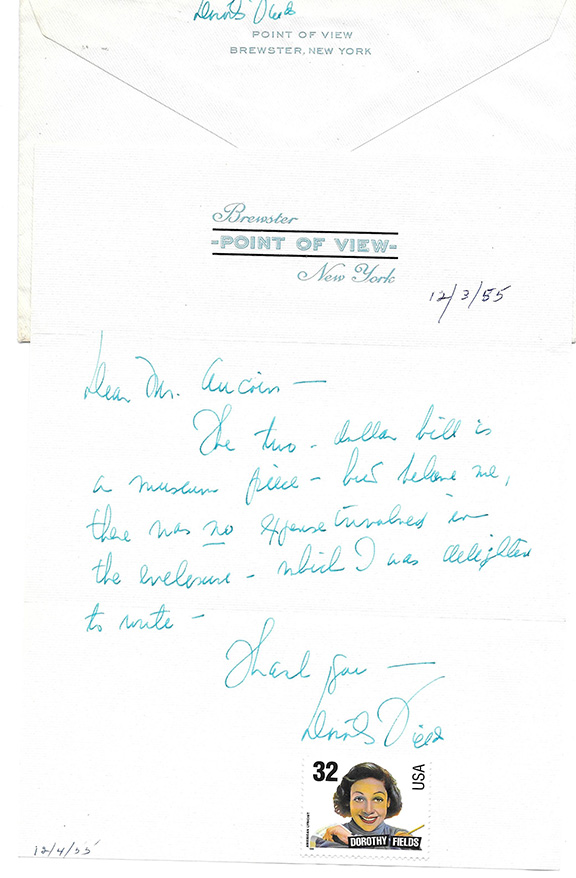 Dorothy Fields
POINT OF VIEW
BREWSTER, NEW YORK
Brewster
-POINT OF VIEW-
New York
12/3/55
Dear Mr. Aucoin —
The two-dollar bill is
a museum piece - but believe me,
there was no expense involved in
the enclosure - which I was delighted
to write -
Thank you —
Dorothy Fields
32
USA
DOROTHY FIELDS
12/4/55